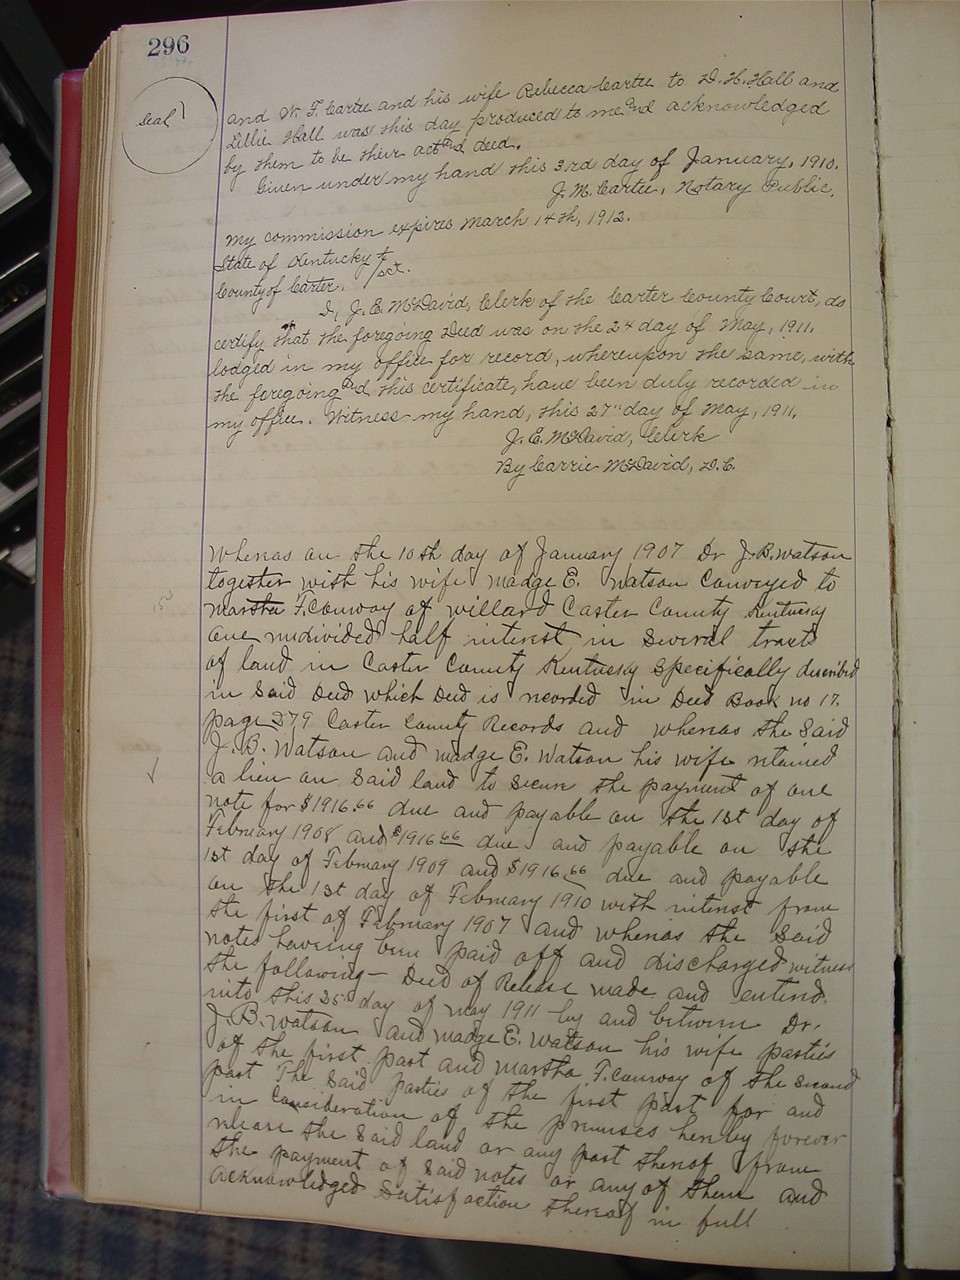 296
Seal
and W. F. Cartee and his wife Rebecca Cartee to D. H. Hall and
Lillie Hall was this day produced to me and acknowledged
by them to be their act and deed.
Given under my hand this 3rd day of January, 1910.
J. M. Cartee, Notary Public.
My commission expires March 14th, 1912.
State of Kentucky
sct.
County of Carter.
I, J. E. McDavid, Clerk of the Carter County Court, do
certify that the foregoing Deed was on the 24 day of May, 1911.
lodged in my office for record, whereupon the same, with
the foregoing and this certificate, have been duly recorded in
my office. Witness my hand, this 27" day of May, 1911.
J. E. McDavid, Clerk
By Carrie McDavid, D.C.
Whereas on the 10th day of January 1907 Dr J. B. Watson
together with his wife Madge E. Watson Conveyed to
Martha F. Conway of Willard Carter County Kentucky
one undivided half interest in Several tracts
of land in Carter County Kentucky Specifically described
in Said Deed which Deed is recorded in Deed Book no 17.
page 279 Carter County Records and whereas the Said
J. B. Watson and Madge E. Watson his wife retained
a lien on Said land to Secure the payment of one
note for $1916.66 due and payable on the 1st day of
February 1908 and $1916 66 due and payable on the
1st day of February 1909 and $1916.66 due and payable
on the 1st day of February 1910 with interest from
the first of February 1907 and whereas the Said
notes haveing been paid off and discharged witness
the following - Deed of Release made and entered.
into this 25 day of May 1911 by and between Dr.
J. B. Watson and Madge E. Watson his wife parties
of the first part and Martha F. Conway of the Second
part The Said parties of the first part for and
in Consideration of the premises hereby forever
release the Said land or any part thereof from
the payment of Said notes or any of them and
acknowledged Satisfaction thereof in full